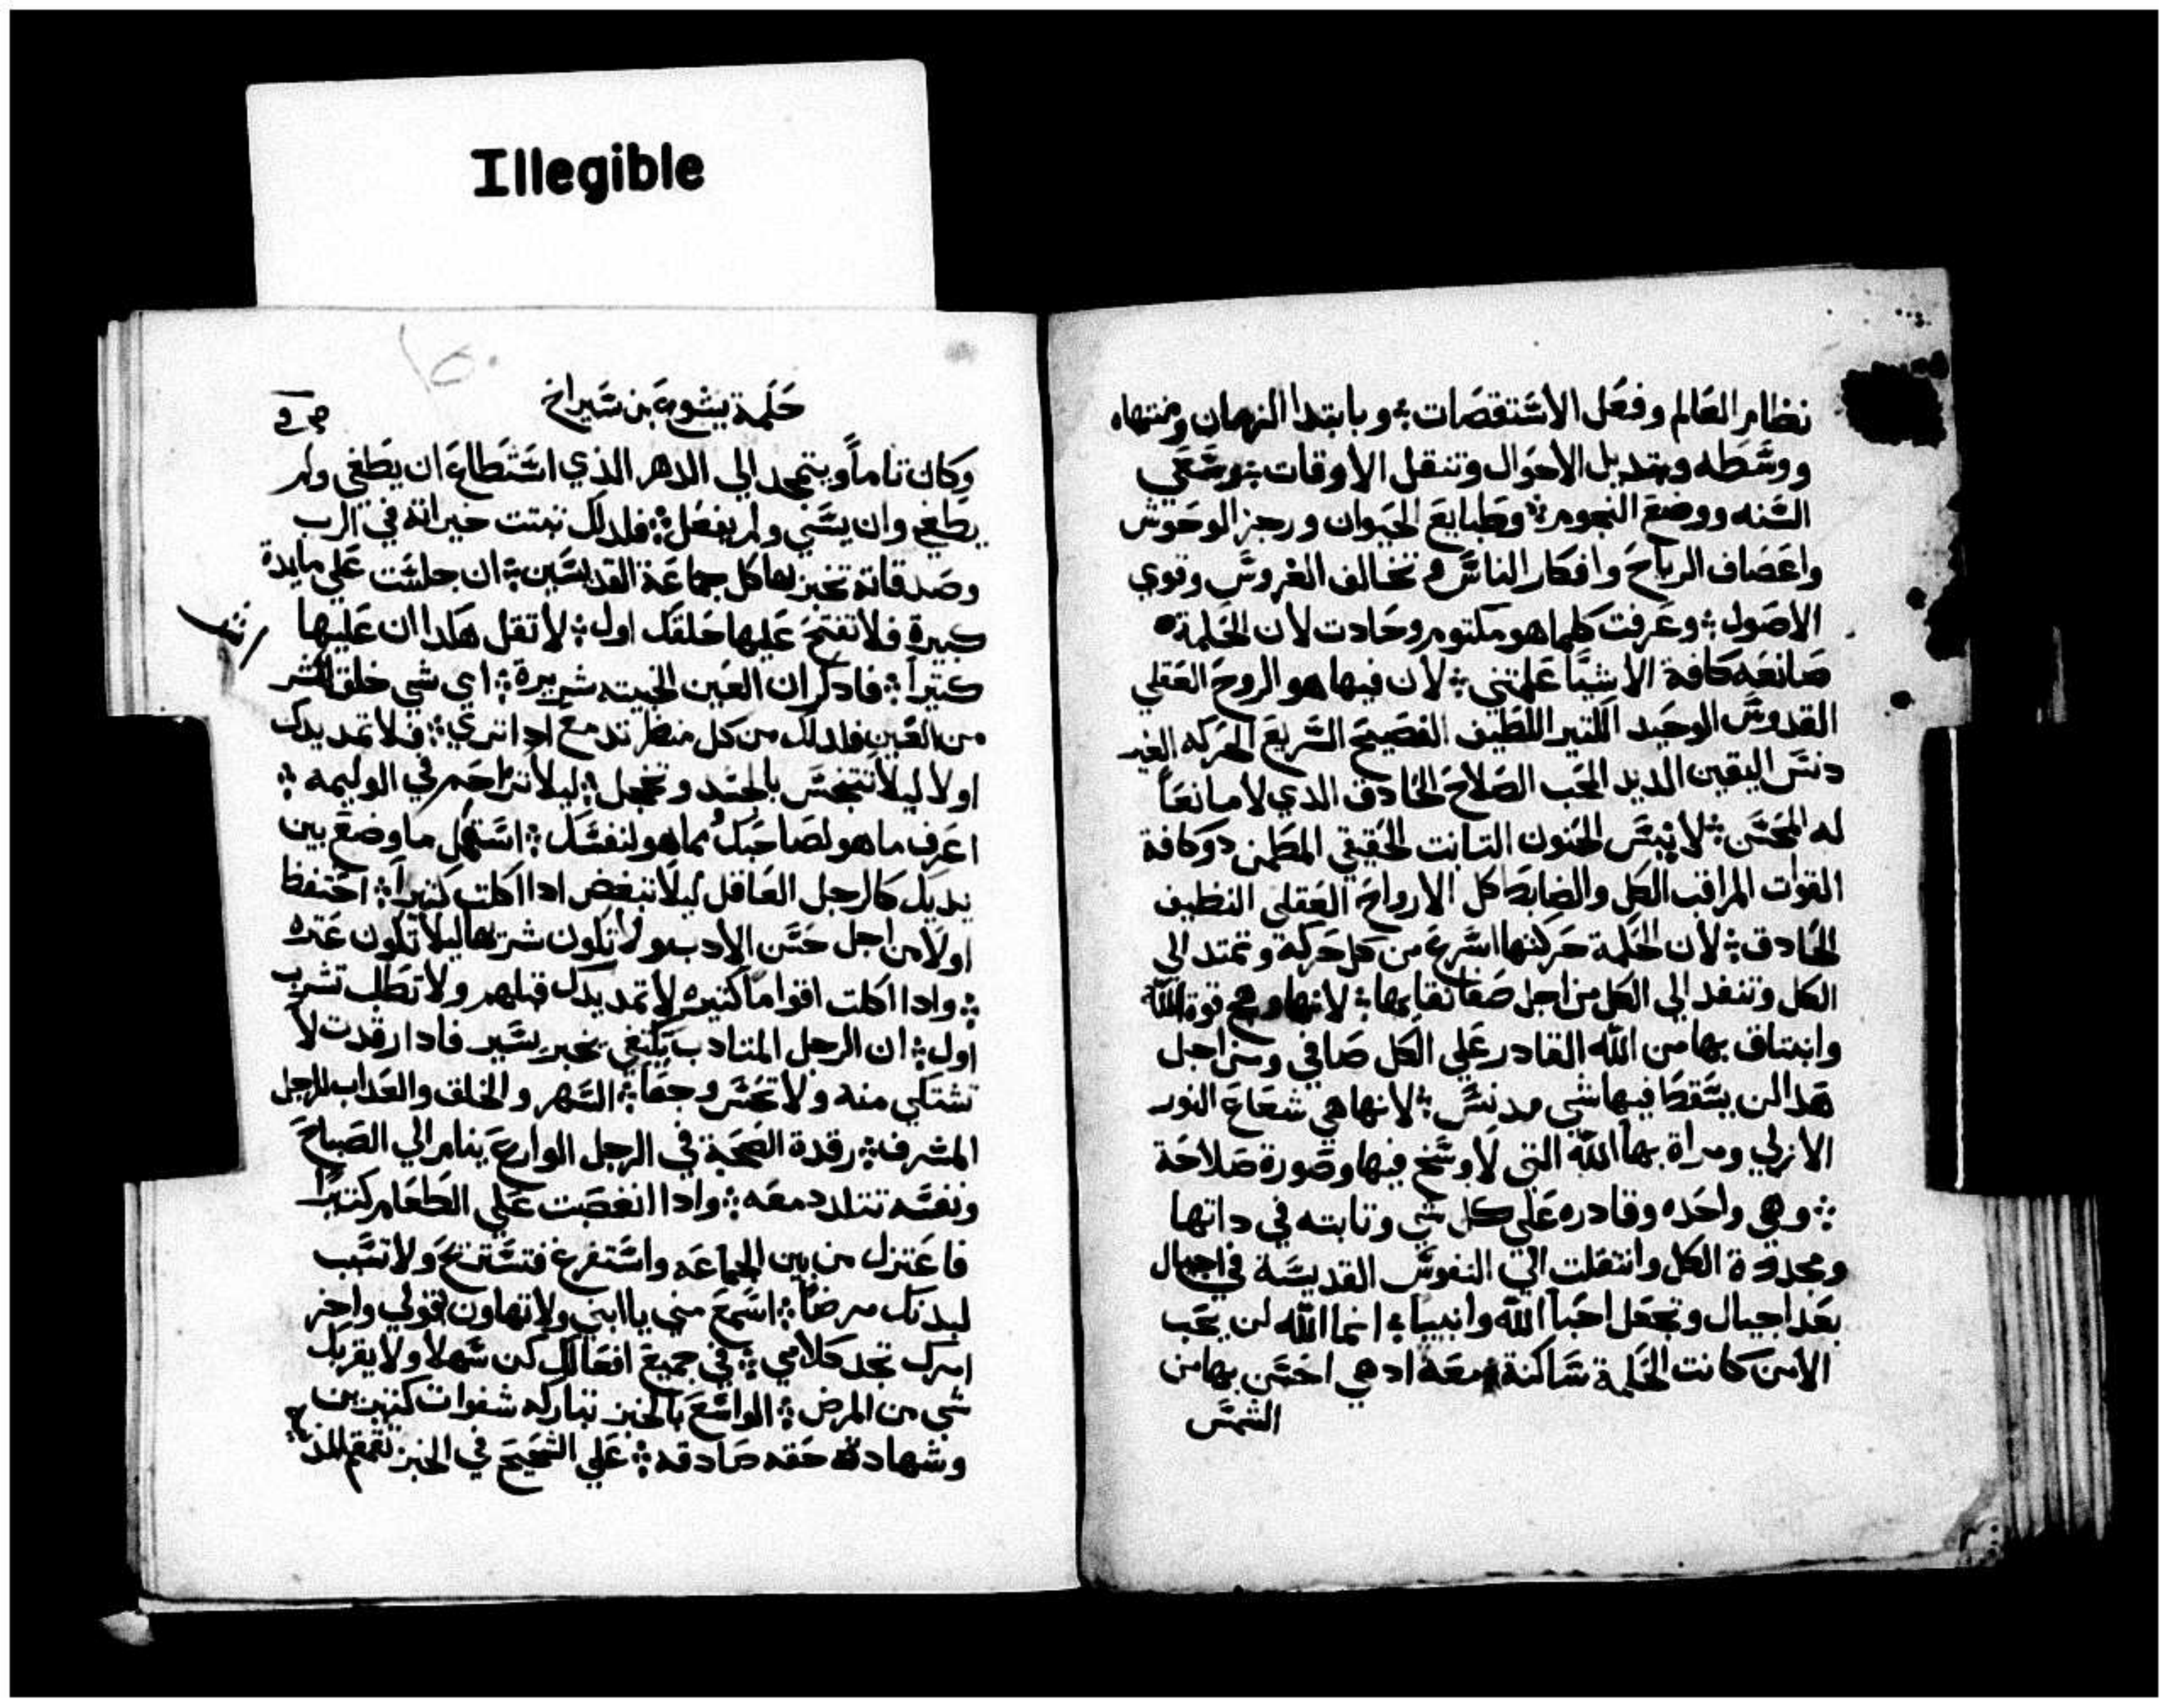 Illegible
نظام العالم وفعل الاستقصات ؛ وبابتدا الزمان ومنتهاه
ووسطه وبتديل الاحوال وتنقل الاوقات
السنه ووضع النجوم ؛ وطبايع الحيوان ورجز الوحوش
واعصاف الرياح وافكار الناس وتخالف الغروس وقوي
الاصول ؛ وعرفت كلما هو مكتوم وحادت لان الحكمة
صانعه كافة الاشيا علمتني ؛ لان فيها هو الروح العقلي
القدوس الوحيد اللطيف الفصيح السريع الحركه الغير
دنس اليقين الديد المحب الصلاح الحادق الدي لا مانعا
له المحسن ؛ الحنون التابت الحقيقي المطمن دو كافة
القوات المراقب الكل والضابط كل الارواح العقلي النظيف
الحادق ؛ لان الحكمة حركتها اسرع من كل حركة وتمتد الي
الكل وتنفد الي الكل من اجل بها ؛ لانها هي قوة الله
وانبتاق بها من الله القادر علي الكل صافي ومن اجل
هدا لن يسقط فيها شي مدنس ؛ لانها هي شعاع النور
الازلي ومراة بها الله التي لا وسخ فيها وصورة صلاحة
؛ وهي واحده وقادره علي كل شي وتابته في داتها
ومجددة الكل وانتقلت الي النفوس القديسة في اجيال
بعد اجيال وتجعل احبا الله وانبيا ؛ انما الله لن يحب
الا من كانت الحكمة ساكنة معه اد هي احسن بها من
الشمس
حكمة يشوع بن سيراخ
وكان تاما ويتمجد الي الدهر الدي استطاع ان يطغي ولم
يطغي وان يسي ولم يفعل ؛ فلدلك تبتت خيراته في الرب
وصدقاته تخبر بها كل جماعة القديسين ؛ ان جلست علي مايدة
كبيرة فلا تفتح عليها حلقك اول ؛ لا تقل هكدا ان عليها
كتيرا ؛ فادكر ان العين الخبيته شريرة ؛ اي شي خلق اشر
من العين فلدلك من كل منظر تدمع ادا تري ؛ فلا تمد يدك
اولا ليلا تتنجس بالحسد وتخجل ؛ ليلا تزاحم في الوليمه ؛
اعرف ما هو لصاحبك مما هو لنفسك ؛ استعمل ما وضع بين
يديك كالرجل العاقل ليلا تبغض ادا اكلت كتيرا ؛ احتفظ
اولا من اجل حسن الادب ولا تكون شرها ليلا تكون عتره
؛ وادا اكلت اقواما كتيره لا تمد يدك قبلهم ولا تطلب تشرب
اول ؛ ان الرجل المتادب يكتفي بخمر يسير فادا رقدت لا
تشتكي منه ولا تحس وجعا ؛ السهر والخلق والعداب للرجل
المشرف ؛ رقدة الصحية في الرجل الوارع ينام الي الصباح
ونفسه تتلدد معه ؛ وادا انغصبت علي الطعام كتيرا
فاعتزل من بين الجماعه واستفرغ فتستريح ولا تسبب
لبدنك مرضا ؛ اسمع مني يا ابني ولا تهاون لقولي واخر
امرك تجد كلامي ؛ في جميع افعالك كن سهلا ولا يقربك
شي من المرض ؛ الواسع بالخبز تباركه شفوات كتيرين
وشهادة حقه صادقه ؛ علي الشحيح في الخبز